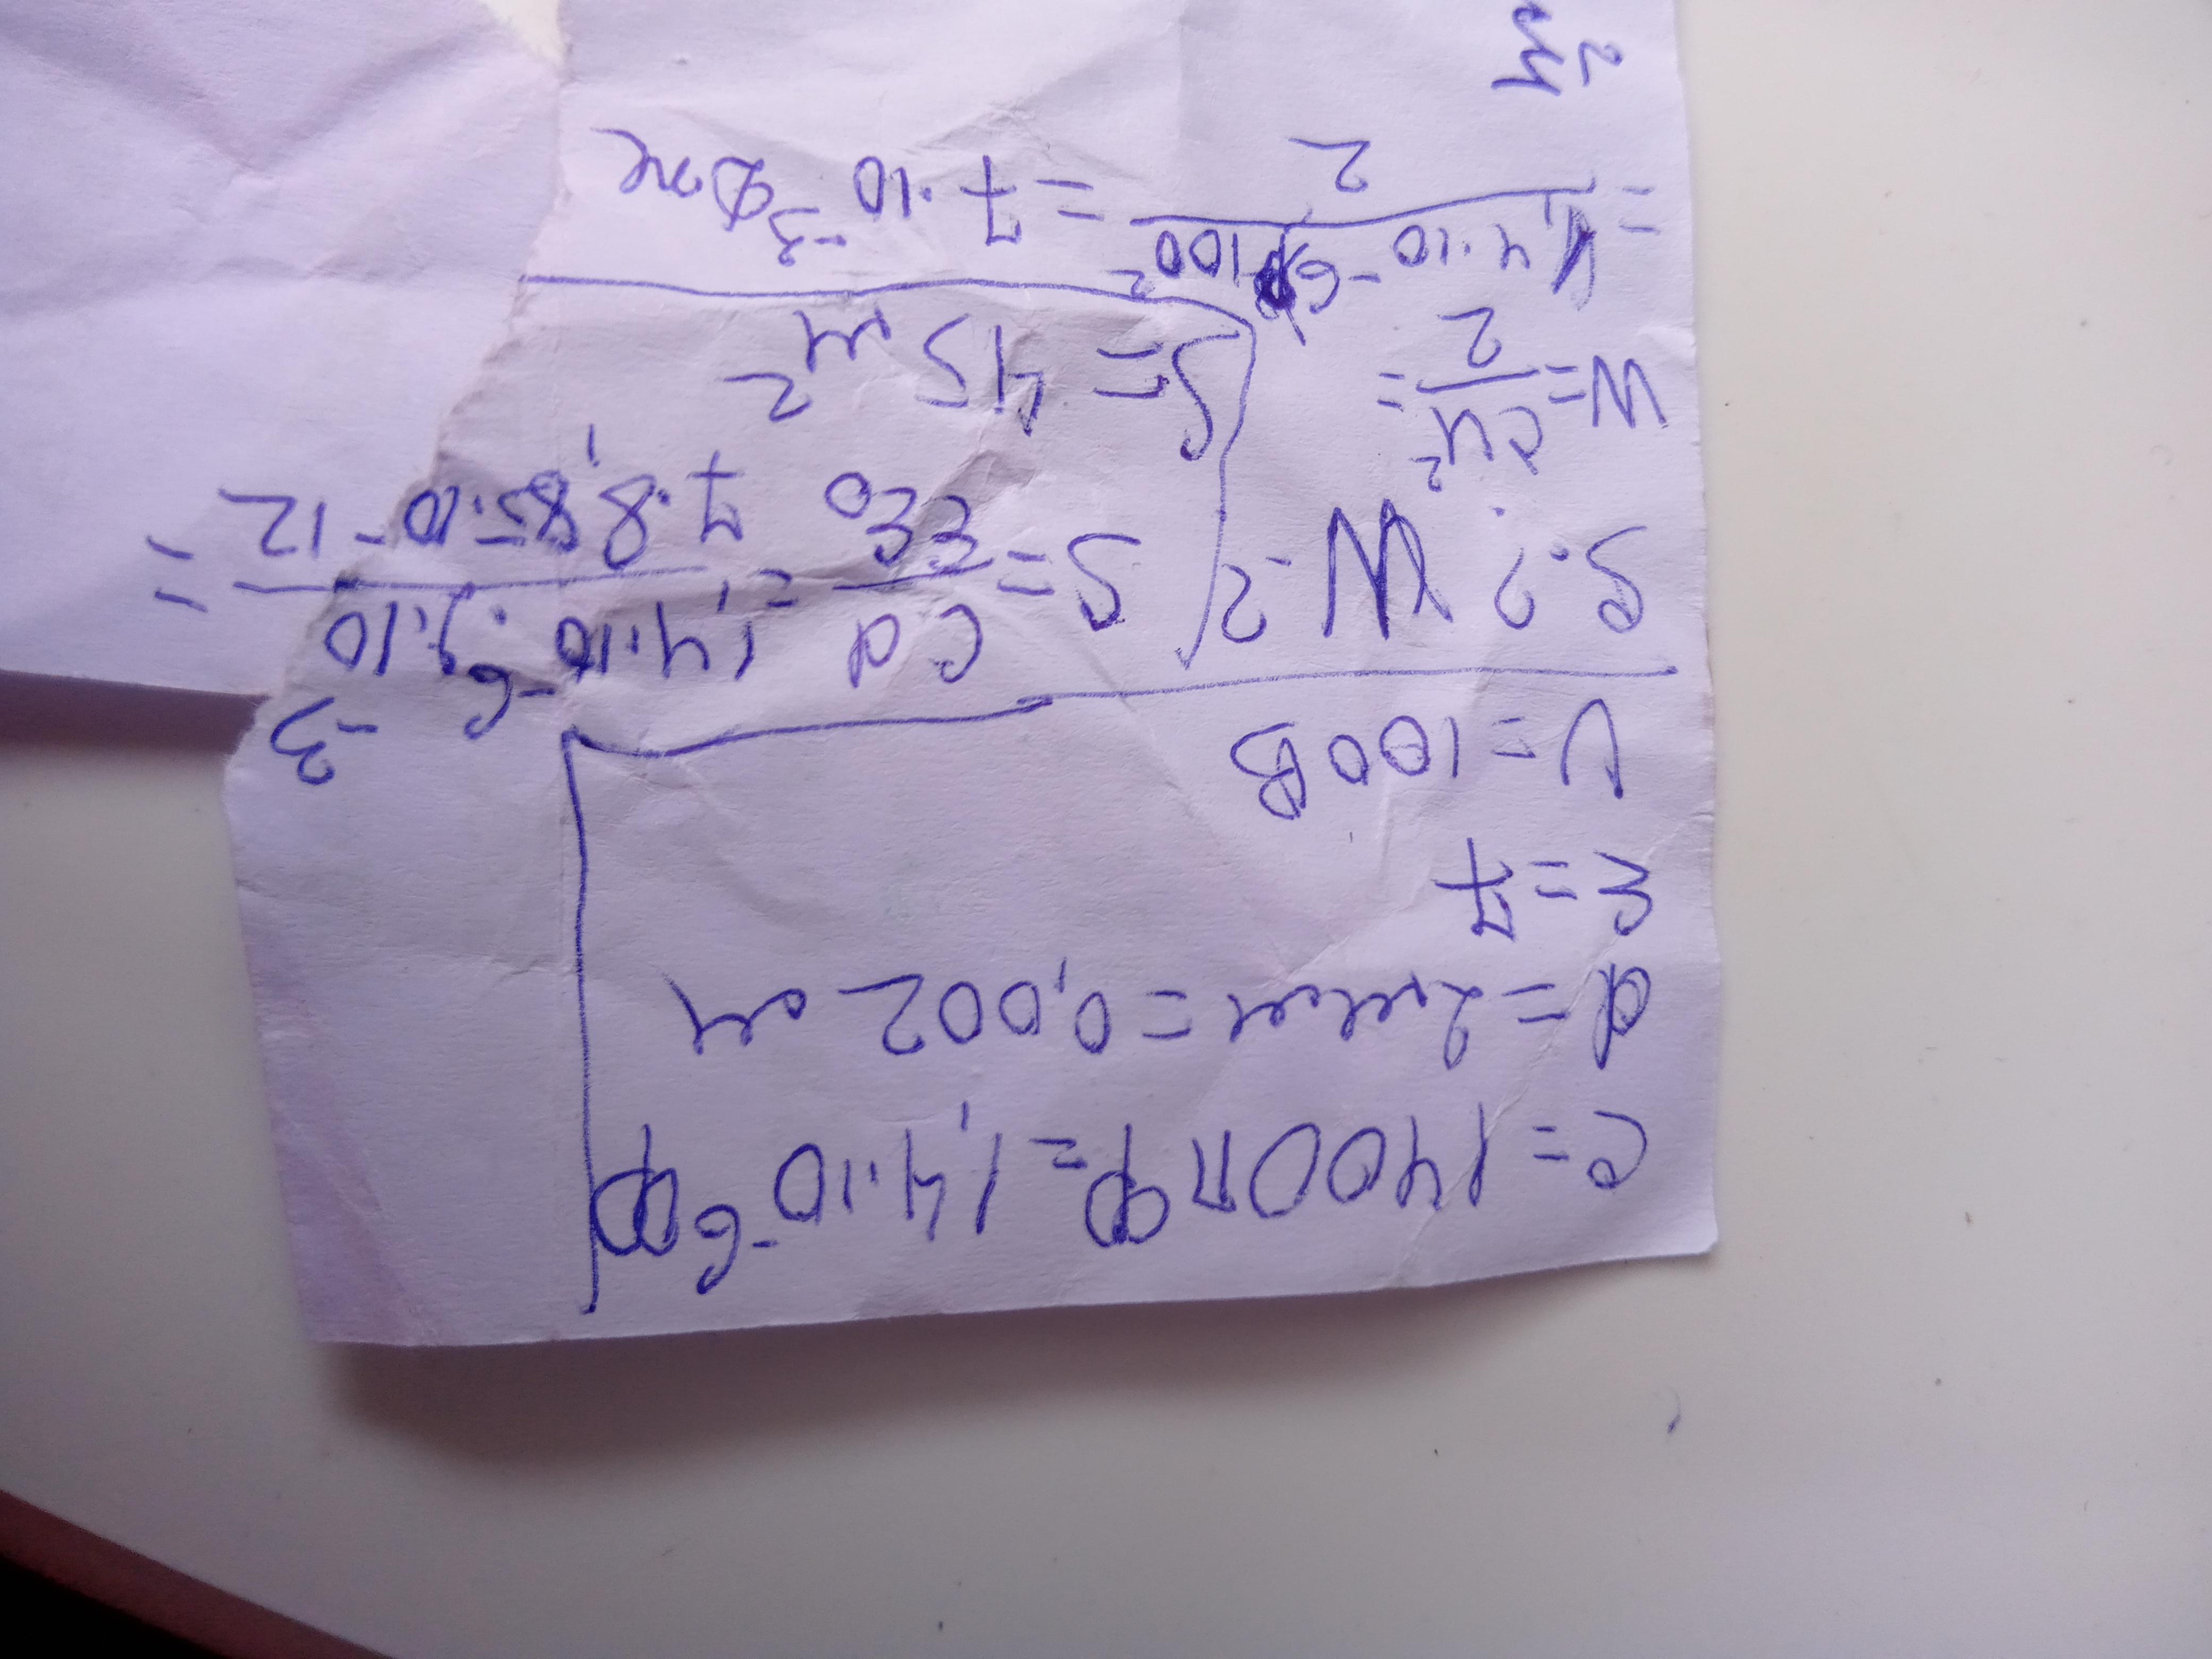 C = 1400пф = 1,4·10⁻⁶ф
d = 2мм = 0,002 м
ε = 7
U = 100В
S.? W-?
S = Cd/εε₀ = 1,4·10⁻⁶·2·10⁻³/7·8,85·10⁻¹² =
S = 45 м²
W = CU²/2 =
= 1,4·10⁻⁶·100²/2 = 7·10⁻³ Дж